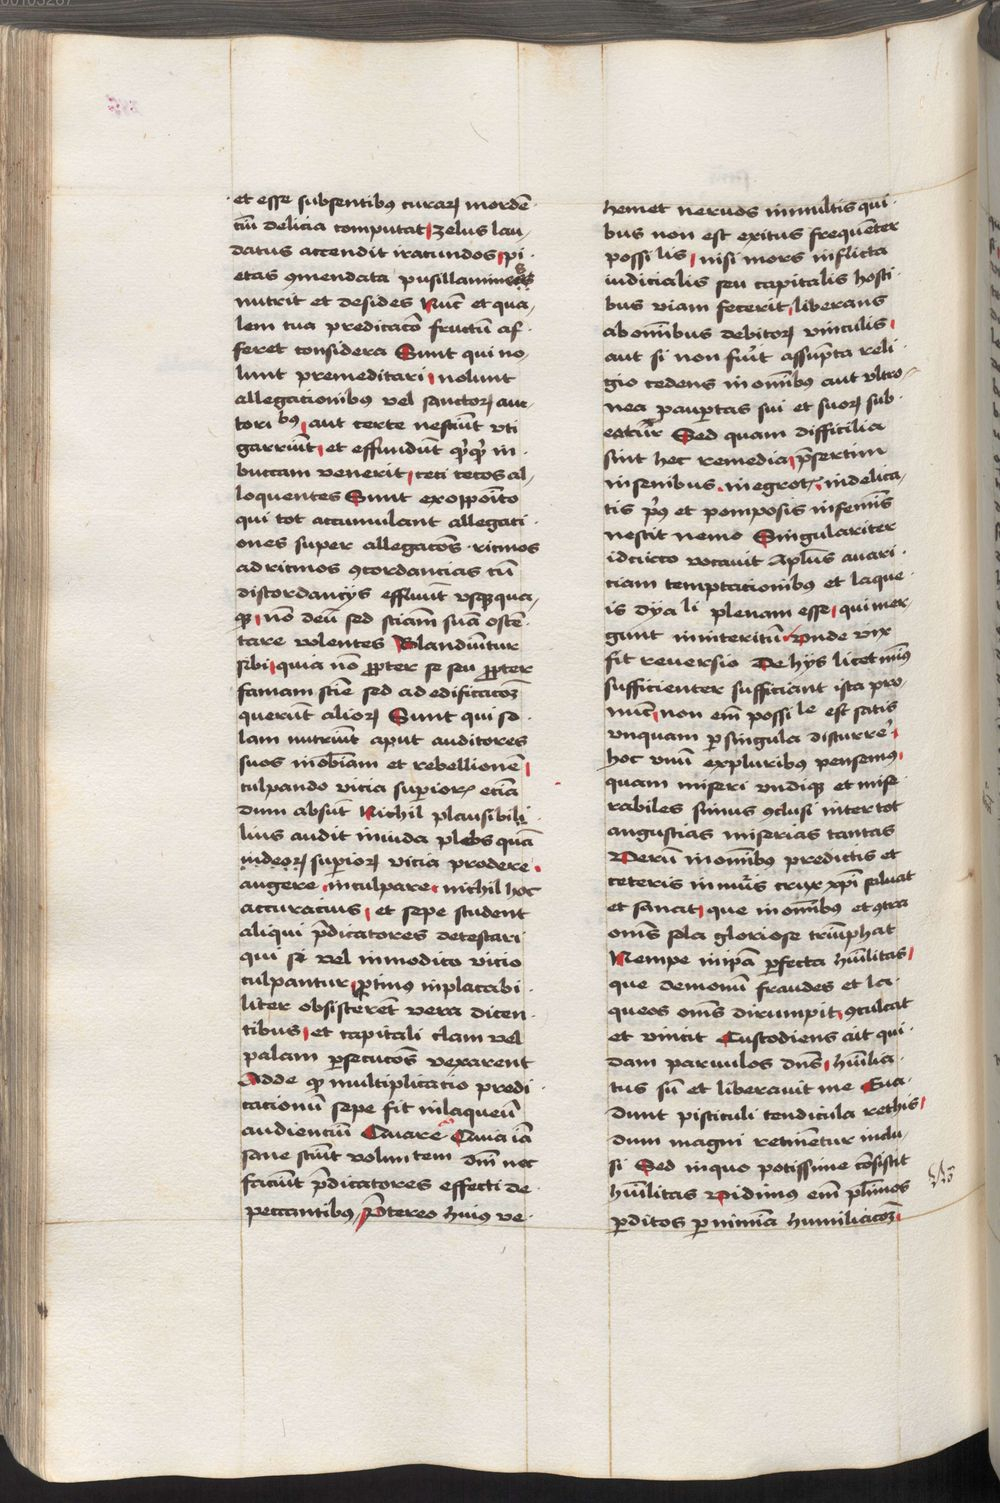 et esse subsentibꝰ curaꝝ mordē
ciū delicia computat zelus lau
datus accendit iracundos pi
etas ꝯmendata pusillanimes
nutrit et desides Nūc et qua
lem tua predicacō fructū af
feret considera Sunt qui no
lunt premeditari nolunt
allegacionibꝰ vel sanctoꝝ auc
toribꝰ aut certe nesciūt vti
garriūt et effundūt qͥcqͥd in
buccam venerit ceci cecos al
loquentes Sunt exopposito
qui tot accumulant allegati
ones super allegacōs ritmos
ad ritmos ꝯcordancias cū
discordancijs effluūt vsqꝫ qua
qꝫ nō deū sed sciam̄ suā ostē
tare volentes Blandiūtur
sibi quia nō ꝓpter se seu ꝓpter
famam sciē sed ad edificacoꝫ
querūt alioꝝ Sunt qui so
lam nutriūt aput auditores
suos inobiam̄ et rebellionē
culpando vicia superioꝝ eciā
dum absūt Nichil plausibili
lius audit inuida plebs quā
in deoꝝ superioꝝ vicia prodere
augere inculpare nichil hoc
accuracius et sepe student
aliqui p̄dicatores detestari
qui si vel in modico vicio
culpantur ꝓtinus inplacabi
liter obsisterēt vera dicen
tibus et capitali clam vel
palam ꝑsecucōe vexarent
Adde ꝙ multiplicacio predi
cacionū sepe fit in laqueū
audienciū Quare Quia iā
sane sciūt voluntem dnī nec
faciūt p̄dicatores effecti de
peccantibꝰ P̄tereo huiꝰ ve
hemet neruos in multis qui
bus non est exitus frequēter
possilis nisi mors inflicta
iudicialis seu capitalis hosti
bus viam fecerit liberans
ab omībus debitoꝝ vinculis
aut si non fiūt assūpta reli
gio cedens in omībꝰ aut vltro
nea pauꝑtas sui et suoꝝ sub
eatur Sed quam difficilia
sint hec remedia p̄sertim
in senibus in egrotꝭ in delica
tis pͥꝰ et pomposis in femīs
nescit nemo Singulariter
idcirco vocauit apl̄us auari
ciam temptacionibꝰ et laque
is dyali plenam esse qui mer
gunt in interitū vnde vix
fit reuersio De hijs licet miꝰ
sufficienter sufficiant ista pro
nūc non em̄ possile est satis
vnquam ꝑ singula discurrē
hoc vnū ex pluribus pensemꝰ
quam miseri vndiqꝫ et mise
rabiles simus ꝯclusi inter tot
angustias miserias tantas
Verū in omībus predictis et
ceteris in mūs crux xpī saluat
et sanat que in omībus et ꝯtra
omīs sola gloriose triūphat
Nempe in ip̄a ꝑfecta hūilitas
que demonū fraudes et la
queos omīs dirumpit ꝯculcat
et vincit Custodiens ait qui
dam paruulos dn̄s hūilia
tus sū et liberauit me Eua
dunt pisciculi tendicula rethis
dum magni retinētur inclu
si Sed in quo potissime cōsistit
hūilitas Vidimus em̄ pl̄imos
ꝑditos ꝑ nimiā humiliacōeꝫ